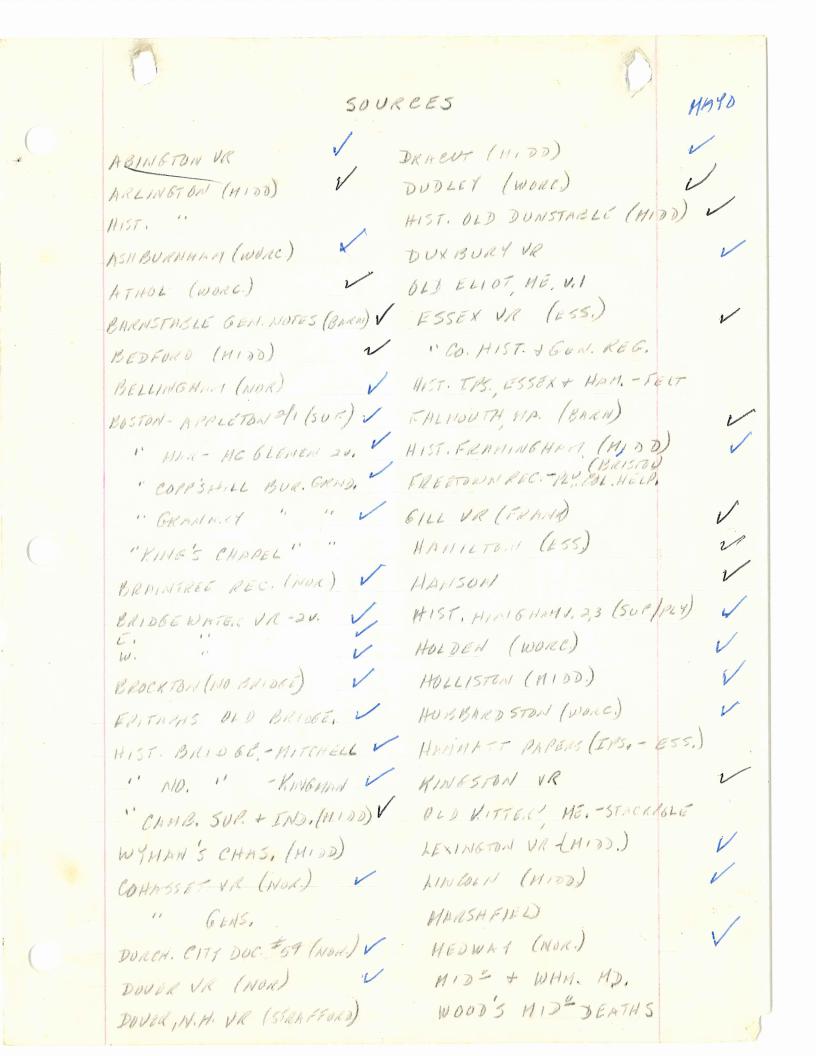 SOURCES
MAYO
ABINGTON VR ✓
ARLINGTON (MIDD) ✓
HIST. "
ASHBURNHAM (WORC) ✓
ATHOL (WORC.) ✓
BARNSTABLE GEN. NOTES (BARN) ✓
BEDFORD (MIDD) ✓
BELLINGHAM (NOR) ✓
BOSTON - APPLETON 2/1 (SUF) ✓
" MAR - MC GLENEN 2V. ✓
" COPP'S HILL BUR. GRND. ✓
" GRANARY " " ✓
" KING'S CHAPEL " "
BRAINTREE REC. (NOR) ✓
BRIDGEWATER VR - 2V. ✓
E. " ✓
W. " ✓
BROCKTON (NO BRIDGE) ✓
EPITAPHS OLD BRIDGE. ✓
HIST. BRIDGE. - MITCHELL ✓
" NO. " - KINGMAN ✓
" CAMB. SUP. + IND. (MIDD) ✓
WYMAN'S CHAS. (MIDD)
COHASSET VR (NOR.) ✓
" GENS.
DORCH. CITY DOC. #59 (NOR.) ✓
DOVER VR (NOR) ✓
DOVER, N.H. VR (STRAFFORD)
DRACUT (MIDD) ✓
DUDLEY (WORC) ✓
HIST. OLD DUNSTABLE (MIDD) ✓
DUXBURY VR ✓
OLD ELIOT, ME. V.1
ESSEX VR (ESS.) ✓
" CO. HIST. + GEN. REG.
HIST. IPS., ESSEX + HAM. - FELT
FALMOUTH, MA. (BARN) ✓
HIST. FRAMINGHAM (MIDD) ✓
(BRISTOL)
FREETOWN REC. - PLY. COL. HELP.
GILL VR (FRANK) ✓
HAMILTON (ESS) ✓
HANSON ✓
HIST. HINGHAM V. 2,3 (SUF/PLY) ✓
HOLDEN (WORC) ✓
HOLLISTON (MIDD.) ✓
HUBBARDSTON (WORC.) ✓
HAMMATT PAPERS (IPS. - ESS.)
KINGSTON VR ✓
OLD KITTERY, ME. - STACKPOLE
LEXINGTON VR - (MIDD.) ✓
LINCOLN (MIDD) ✓
MARSHFIELD
MEDWAY (NOR.) ✓
MID" + WHM. MD.
WOOD'S MID" DEATHS